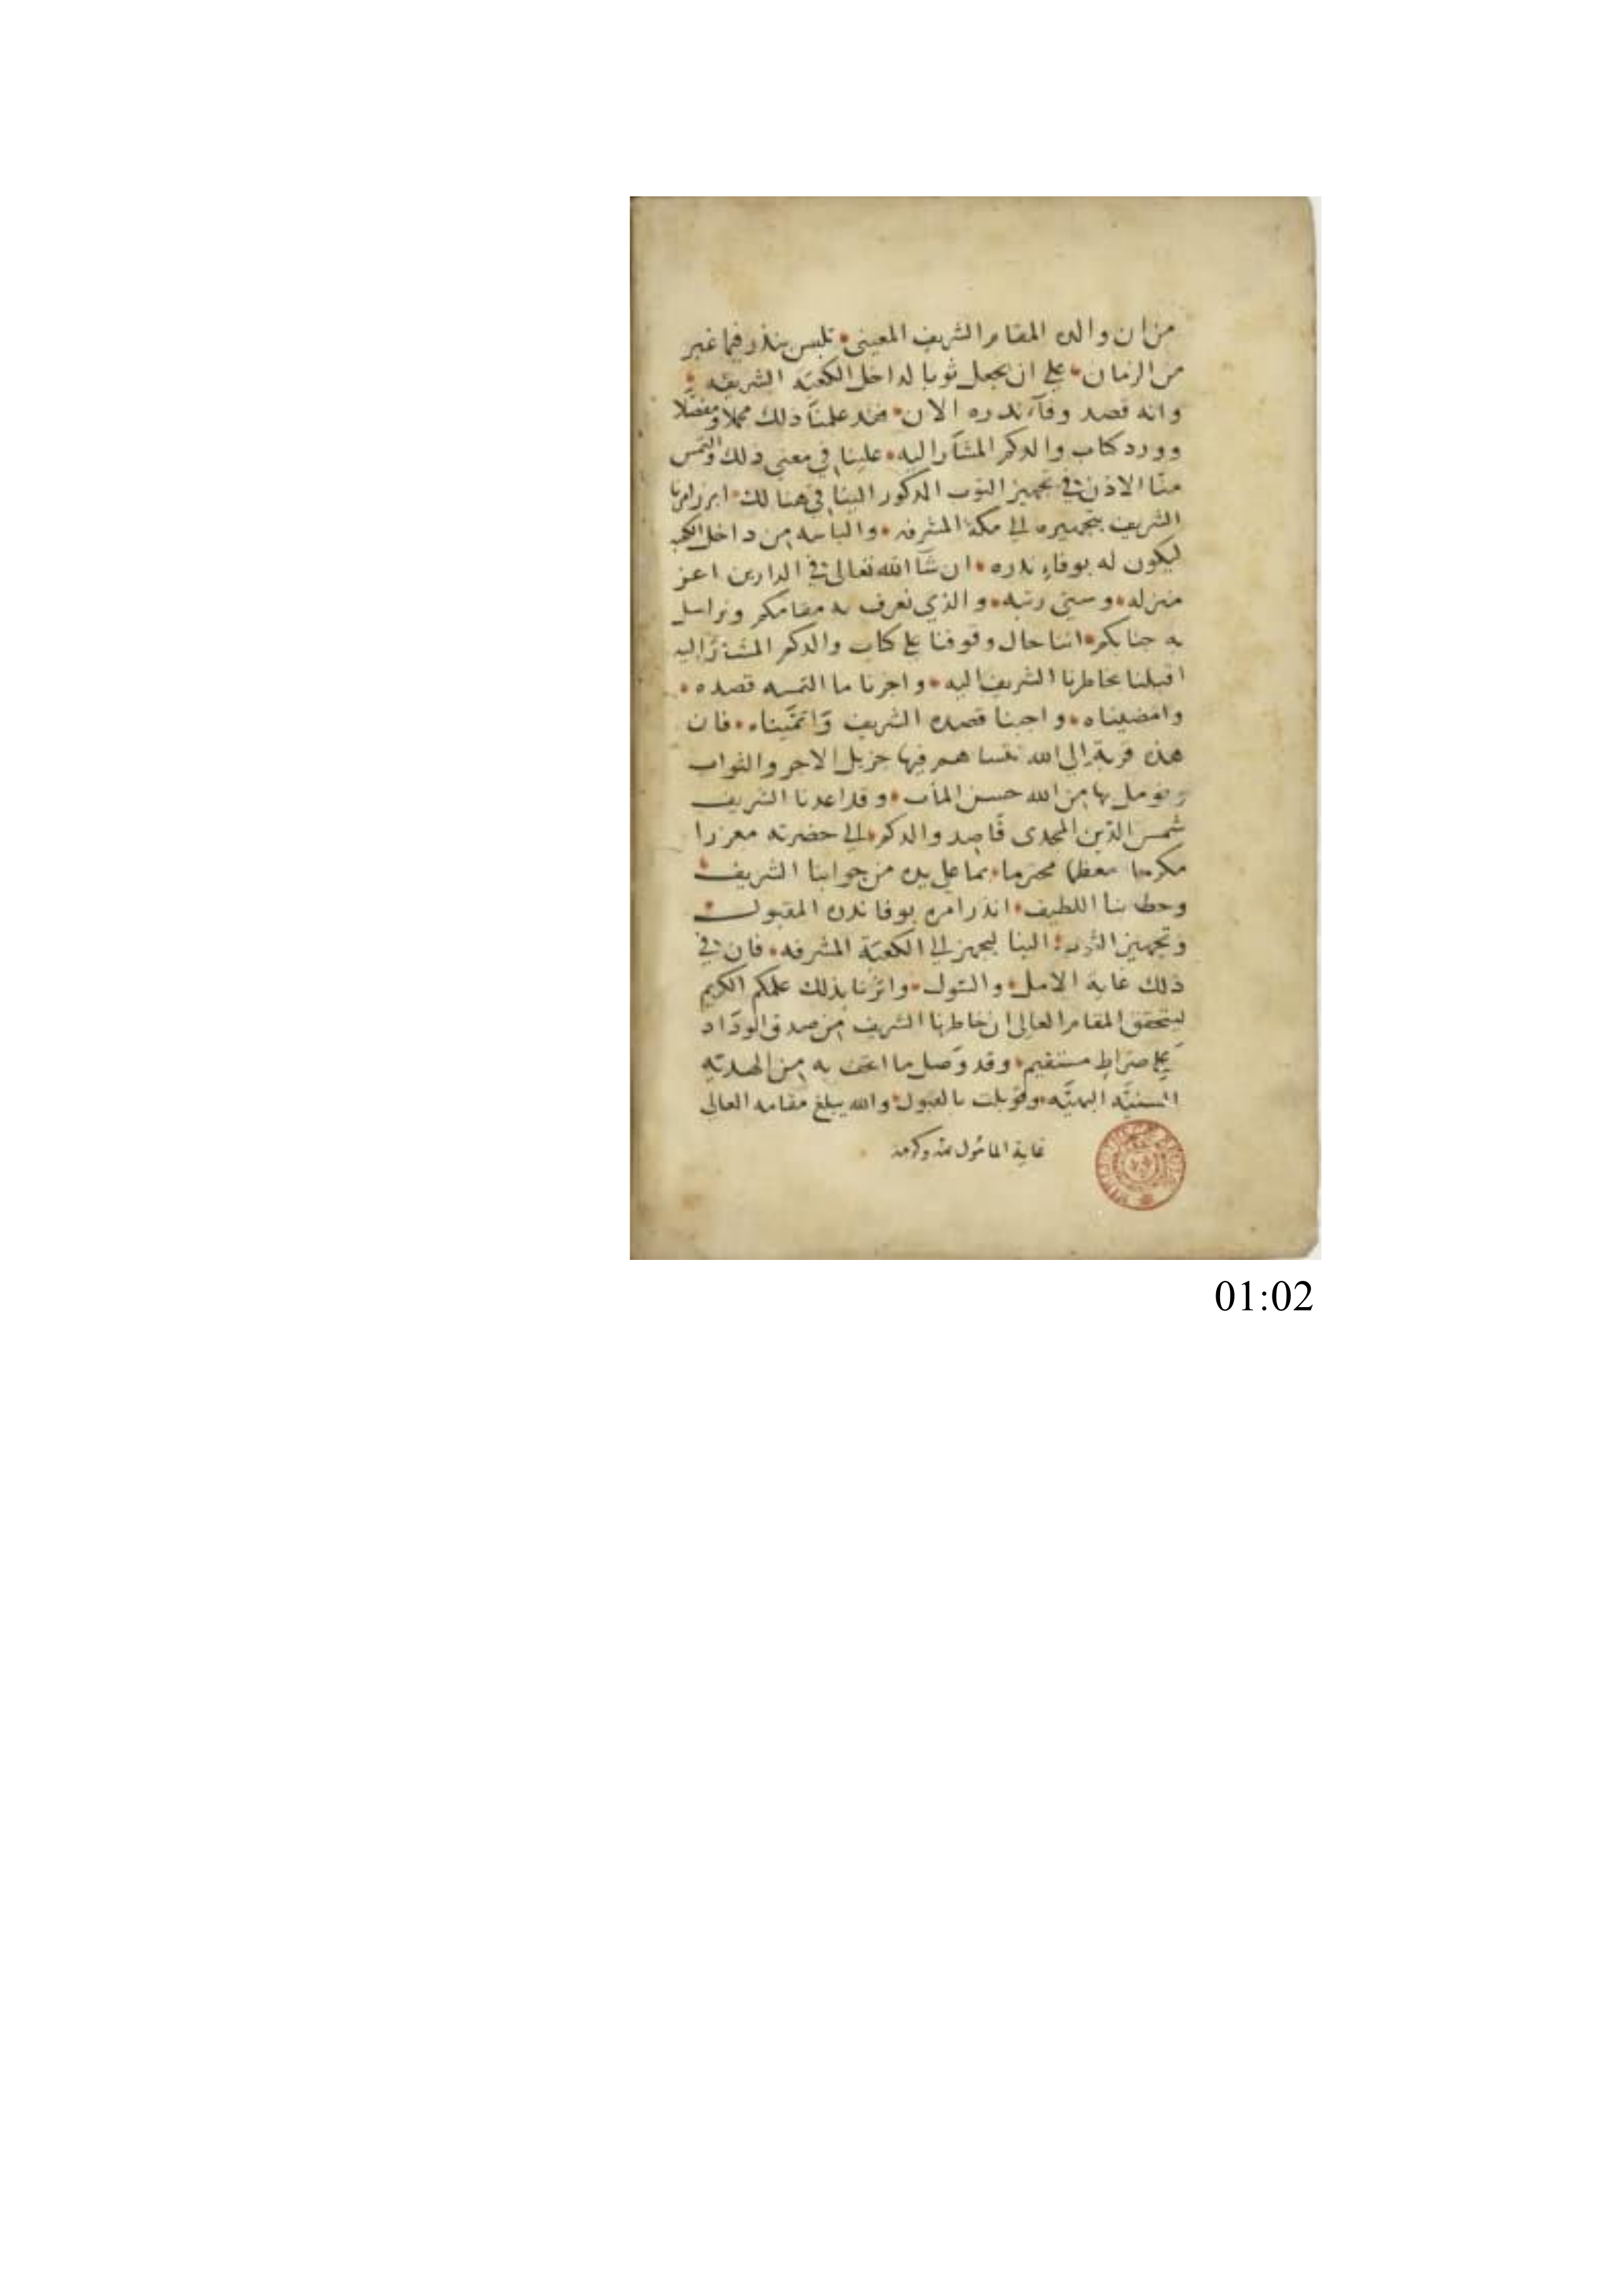 من ان والده المقام الشريف المعيني تلبس بنذر فيما غبر
من الزمان على ان يجعل ثوبا لداخل الكعبة الشريفة
وانه قصد وفآء ندره الان فقد علمنا ذلك مجملا ومفصلا
وورد كتاب والدكم المشار اليه علينا في معنى ذلك والتمس
منا الاذن في تجهيز الثوب المدكور الينا في هنالك ابرز امرنا
الشريف بتجهيزه الى مكة المشرفه والباسه من داخل الكعبه
ليكون له بوفاء ندره ان شآ الله تعالى في الدارين اعز
منزله وسنى رتبه والذي نعرف به مقامكم ونراسل
به جنابكم اننا حال وقوفنا على كتاب والدكم المشار اليه
اقبلنا بخاطرنا الشريف اليه واجزنا ما التمسه قصده
وامضيناه واجبنا قصده الشريف واتممناه فان
هذه قربة الى الله نفسا هم فيها جزيل الاجر والثواب
ونومل بها من الله حسن المأب وقد اعدنا الشريف
شمس الدين المجدى قاصد والدكم الى حضرته معززا
مكرما معظما محترما بما على يده من جوابنا الشريف
وخطابنا اللطيف امره بوفا ندره المقبول
وتجهيز الثوب الينا ليجهز الى الكعبة المشرفه فان في
ذلك غاية الامل والسول واثرنا بذلك علمكم الكريم
ليتحقق المقام العالى ان خاطرنا الشريف من صدق الوداد
على صراط مستقيم وقد وصل ما اتحف به من الهديه
السنيه البهيه وقوبلت بالقبول والله يبلغ مقامه العالى
غاية المامول بمنه وكرمه
01:02